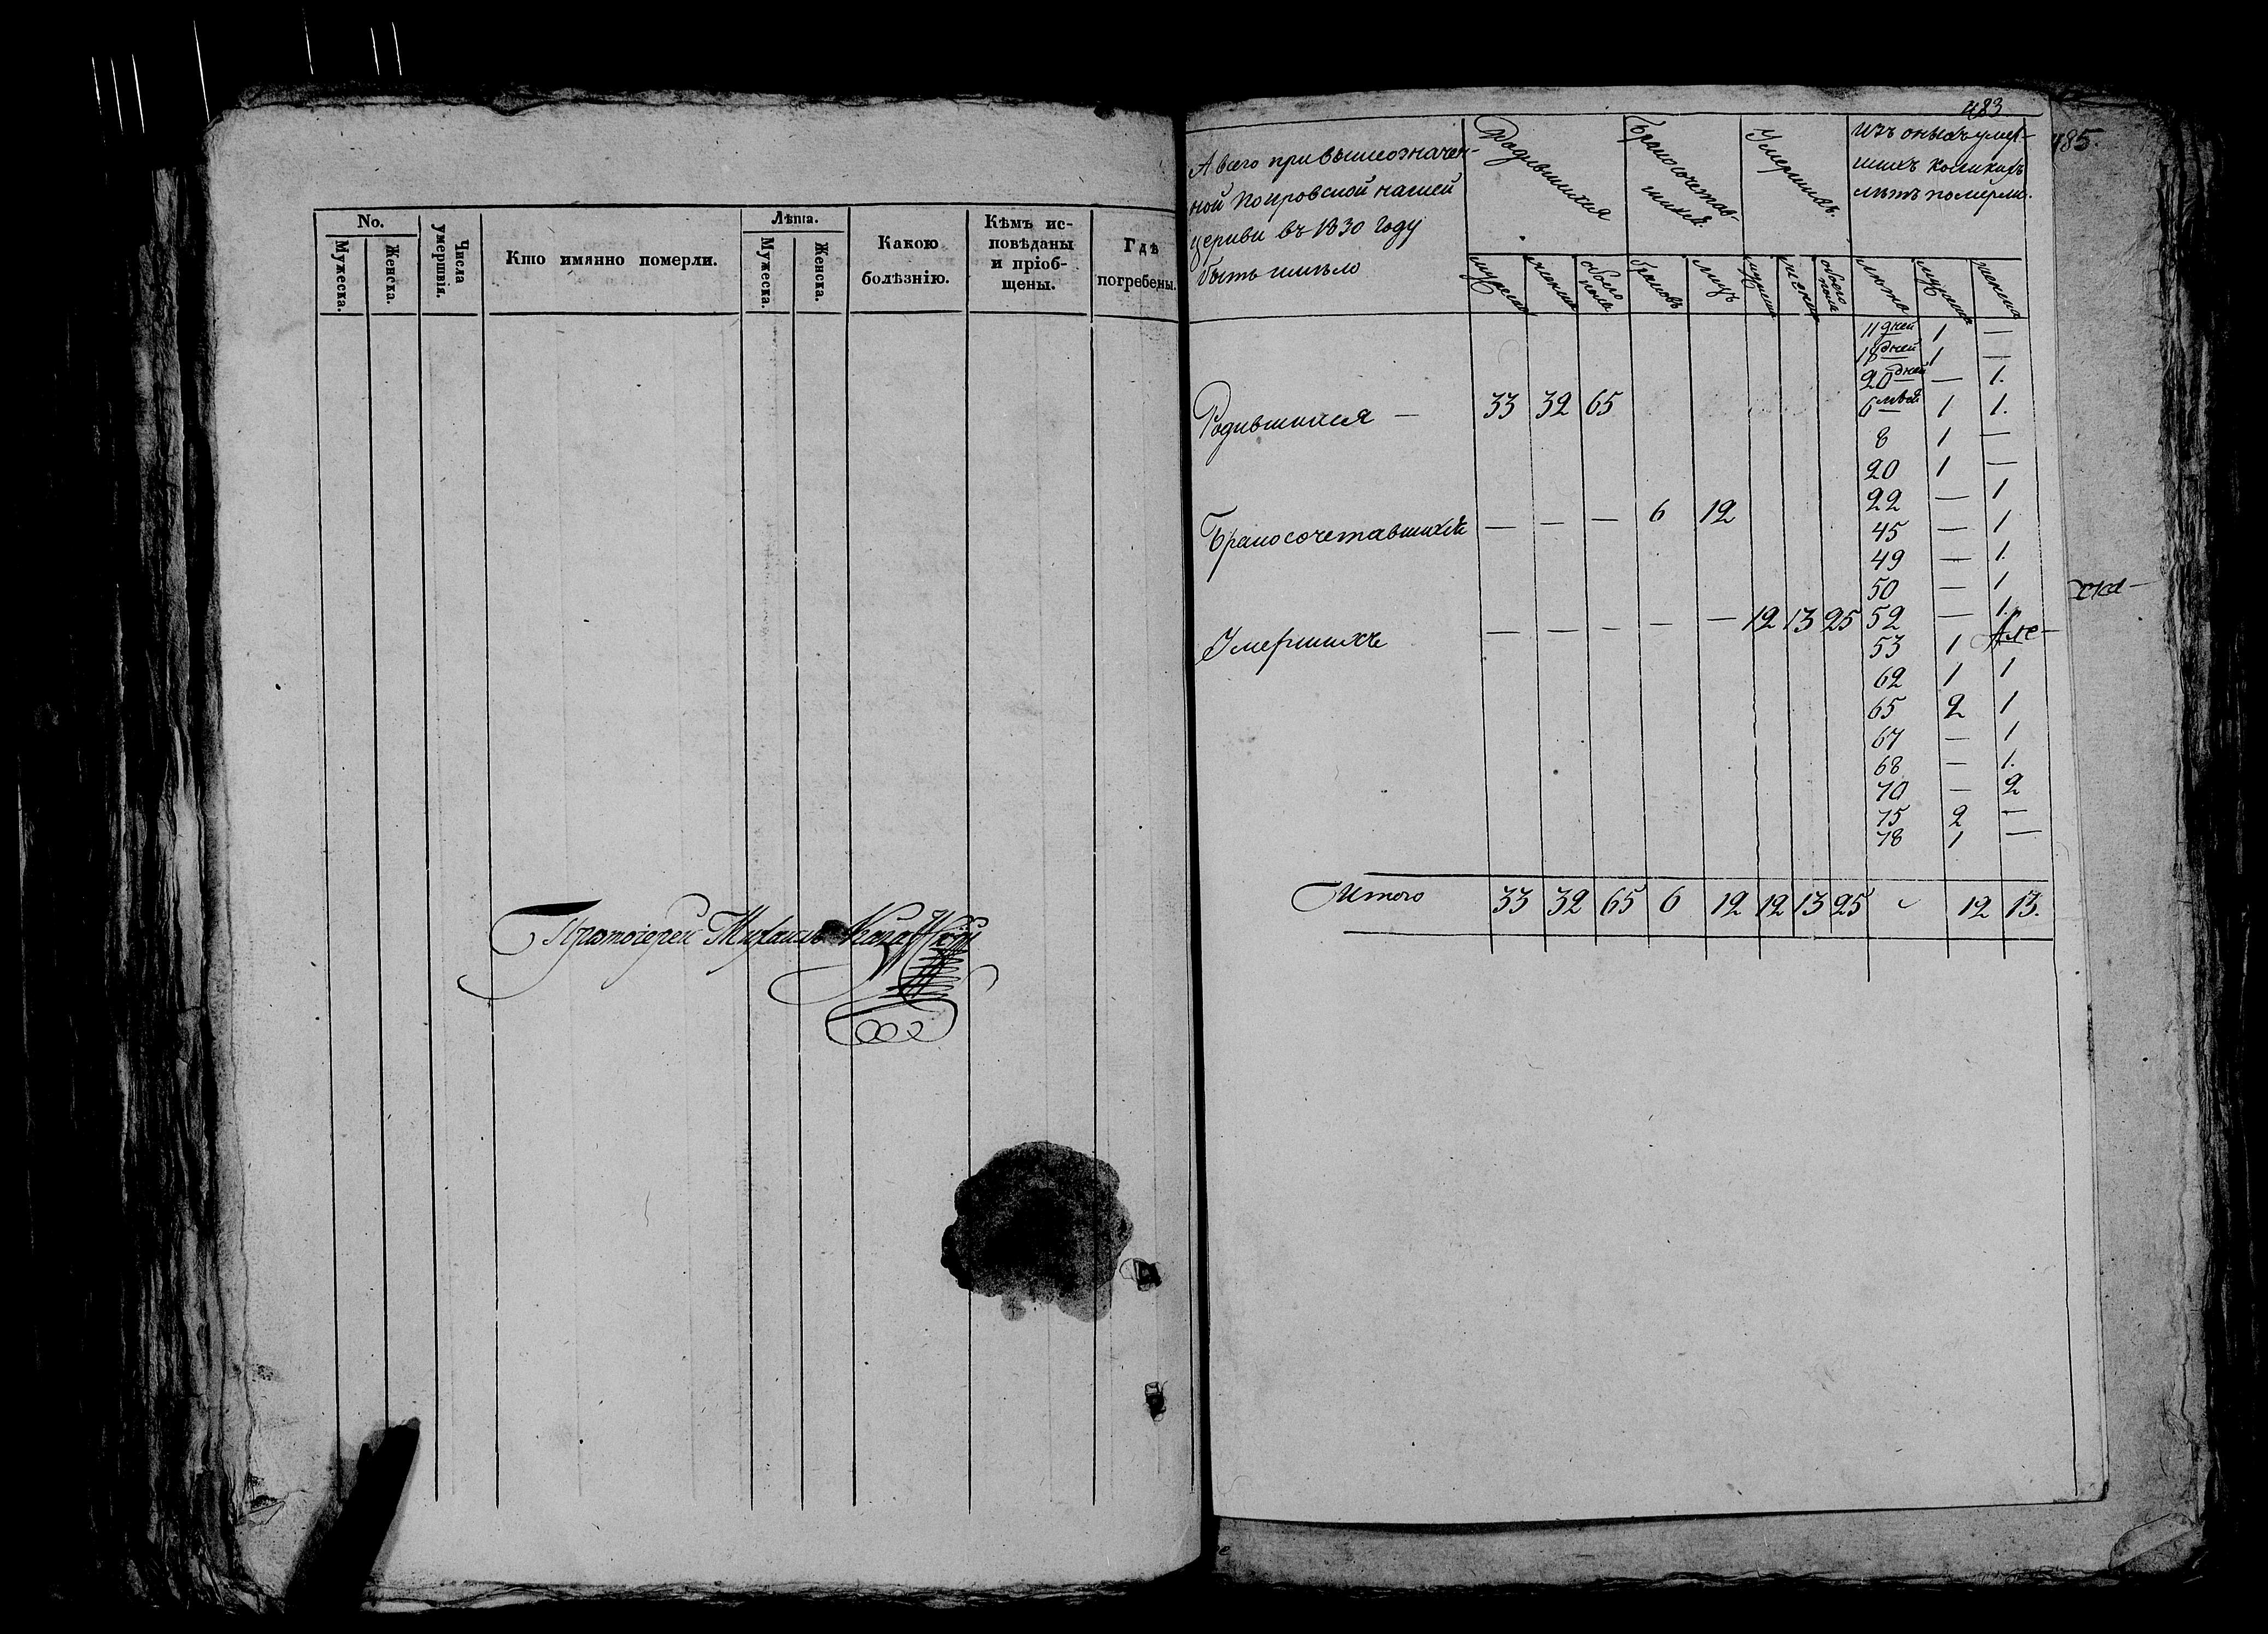 No.
Мужеска.
Женска.
Числа умершвія.
Кто имянно померли.
Лѣта.
Мужеска.
Женска.
Какою
болѣзнію.
Кѣмъ ис-
повѣданы
и пріоб-
щены.
Гдѣ
погребены.
Протоіерей Михаилъ
483
485.
А всего при вышеозначен-
ной Покровской нашей
церкви въ 1830 году
быть имѣло
Родившихся
Бракосочетав-
шихся.
Умершихъ.
изъ оныхъ умер-
шихъ коликихъ
лѣтъ померли.
мужеска
женска
обоего пола
браковъ
лицъ
мужеска
женска
обоего пола
лѣта
мужеска
женска
11 дней 1 —
18 дней 1 —
20 дней — 1.
Родившихся — 33 32 65 6 1 1.
8 1 —
20 1 —
22 — 1
Бракосочетавшихся — — — 6 12
45 — 1
49 — 1.
50 — 1
Умершихъ — — — — — 12 13 25 52 — 1.
53 1
62 1 1
65 2 1
67 — 1
68 — 1.
70 — 2
75 2 —
78 1 —
Итого 33 32 65 6 12 12 13 25 12 13.